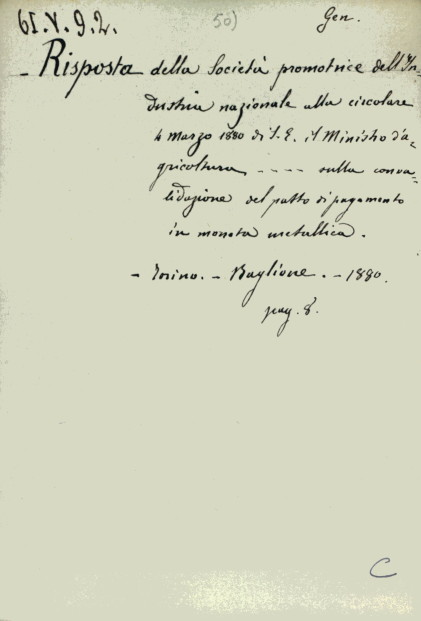 61.V.9.2. 50) Gen.
- Risposta della Società promotrice dell'In-
dustria nazionale alla circolare
4 Marzo 1880 di S. E. il Ministro d'a-
gricoltura ---- sulla conva-
lidazione del patto di pagamento
in moneta metallica.
- Torino. - Baglione. - 1880.
pag. 8.
C